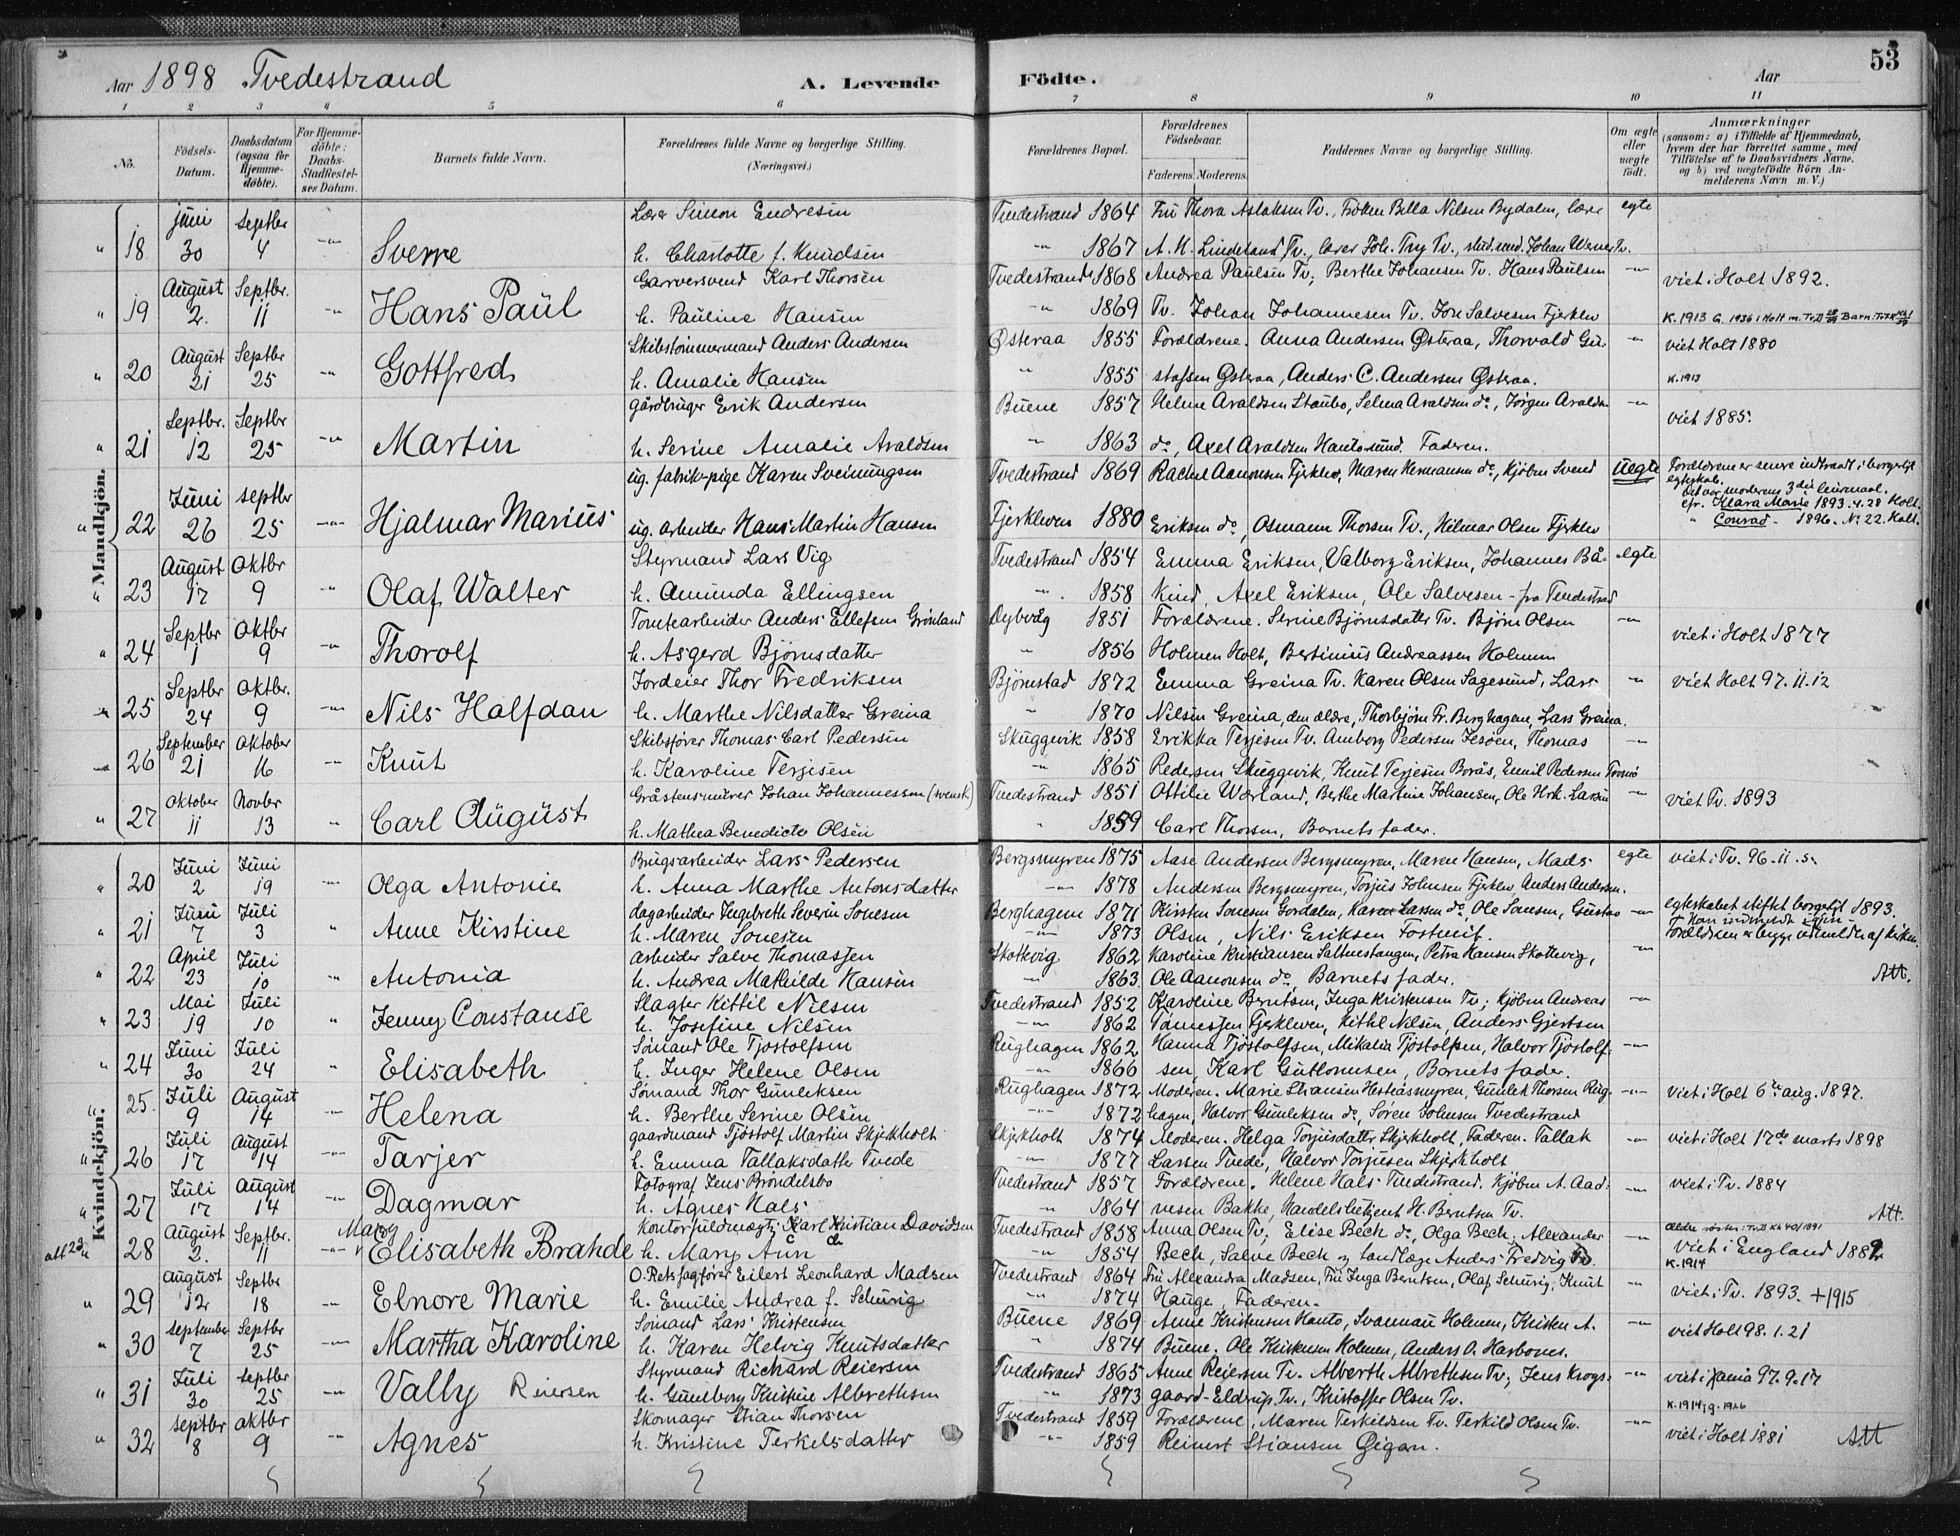 53
Aar 1898 Tvedestrand A. Levende Födte. Aar
1 2 3 4 5 6 7 8 9 10 11
No. Födsels-Datum. Daabsdatum (ogsaa for Hjemmedöbte). For Hjemmedöbte: Daabs-Stadfestelses Datum. Barnets fulde Navn. Forældrenes fulde Navne og borgerlige Stilling. (Næringsvei.) Forældrenes Bopæl. Forældrenes Födselsaar. Faderens. Moderens. Faddernes Navne og borgerlige Stilling. Om ægte eller uægte födt. Anmærkninger (saasom: a) i Tilfælde af Hjemmedaab, hvem der har forrettet samme, med Tilföielse af to Daabsvidners Navne, og b) ved uægtefödte Börn Anmelderens Navn m. V.)
Mandkjön.
juni Septbr Lærer Simon Endresen Tvedestrand 1864 Fru Thora Aslaksen Tv., Frøken Bella Nilsen Bydalen, lærer egte
18 30 4 Sverre h. Charlotte f. Knudsen 1867 A. K. Lindeland Tv., lærer Joh. Try Tv., stud.med. Johan Werner Tv.
August Septbr. Garversvend Karl Thorsen Tvedestrand 1868 Andrea Paulsen Tv; Berthe Johansen Tv. Hans Paulsen viet i Holt 1892.
19 2. 11 Hans Paul h. Pauline Hansen 1869 Tv. Johan Johannesen Tv. Jon Salvesen Fjerklev K. 1913 G. 1936 i Holt
August Septbr Skibstømmermand Anders Andersen Østeraa 1855 Forældrene. Anna Andersen Østeraa, Thorvald Gu- viet Holt 1880
20 21 25 Gottfred h. Amalie Hansen 1855 stafsen Østeraa, Anders C. Andersen Østeraa. K. 1913
Septbr. Septbr gårdbruger Erik Andersen Buene 1857 Helene Avaldsen Staubo, Selma Avaldsen do, Jørgen Avaldsen viet 1885.
21 12 25 Martin h. Serine Amalie Avaldsen 1863 do, Axel Avaldsen Hantosund. Faderen.
Juni septbr ug. fabrikpige Karen Sveinungsen Tvedestrand 1869 Rachel Aanonsen Fjerklev, Maren Hermansen do, Kjøbm Svend Uegte Forældrene er senere indtraadt i borgerligt egteskab.
Det var moderens 3die leiermaal.
22 26 25 Hjalmar Marius ug. arbeider Hans Martin Hansen Fjerkleven 1880 Eriksen do, Osmann Thorsen Tv., Hilmar Olsen Fjerklev cfr. Klara Marie 1893. 4. 28 Holt.
" Conrad - 1896. No 22. Holt.
August Oktbr Styrmand Lars Vig Tvedestrand 1854 Emma Eriksen, Valborg Eriksen, Johannes Bå- egte
23 17 9 Olaf Walter h. Amunda Ellingsen 1858 Kind, Axel Eriksen, Ole Salvesen - fra Tvedestrand
Septbr Oktbr Tomtearbeider Anders Ellefsen Grønland Dybvåg 1851 Forældrene. Serine Bjørnsdatter Tv. Bjørn Olsen viet i Holt 1877
24 1 9 Thorolf h. Asgerd Bjørnsdatter 1856 Holmen Holt, Bertinius Andreassen Holmen
Septbr Oktbr. Jordeier Thor Fredriksen Bjørnstad 1872 Emma Greina Tv. Karen Olsen Sagesund, Lars viet Holt 97. 11. 12
25 24 9 Nils Halfdan h. Marthe Nilsdatter Greina 1870 Nilsen Greina, den ældre, Thorbjørn Fr. Berghagen, Lars Greina.
September Oktober Skibsfører Thomas Carl Pedersen Skuggevik 1858 Erikka Terjesen Tv. Amborg Pedersen Jesøen, Thomas
26 21 16 Knut h. Karoline Terjesen 1865 Pedersen Skuggevik, Knut Terjesen Borås, Emil Pedersen
Oktober Novbr Gråstensmurer Johan Johannesson (svensk) Tvedestrand 1851 Ottilie Wærland, Berthe Martine Johansen, Ole Hrk. Larsen viet Tv. 1893
27 11 13 Carl August h. Mathea Benedicte Olsen 1859 Carl Thorsen, Barnets fader.
Kvindekjön.
Juni Juni Brugsarbeider Lars Pedersen Bergsmyren 1875 Aase Andersen Bergsmyren, Maren Hansen, Mads egte viet i Tv. 96. 11. 5.
20 2 19 Olga Antonie h. Anna Marthe Antonsdatter 1878 Andersen Bergsmyren, Torjus Johnsen Fjerklev Anders Andersen.
Juni Juli dagarbeider Ingebreth Severin Sonesen Berghagene 1871 Kirsten Sonesen Gordalen, Karen Larsen do, Ole Sonesen, Gustav egteskabet stiftet borgerligt 1893.
21 7 3 Anne Kirstine h. Maren Sonesen 1873 Olsen, Nils Eriksen Fosthuit. Forældrene er begge udmeldte af kirken.
April Juli arbeider Salve Thomassen Skottevig 1862 Karoline Kristiansen Saltnestangen, Petra Hansen Skottevig,
22 23 10 Antonia h. Andrea Mathilde Hansen 1863 Ole Aanonsen do, Barnets fader. Att.
Mai Juli Slagter Kittil Nilsen Tvedestrand 1852 Karoline Berntsen, Inga Kristensen Tv; Kjøbm Andreas
23 19 10 Jenny Constanse h. Josefine Nilsen 1862 Tønnessen Fjerkleven, Kittil Nilsen, Anders Gjertsen
Juni Juli Sømand Ole Tjostolfsen Rughagen 1862 Hanna Tjøstolfsen, Mikalia Tjöstolfsen, Halvor Tjöstolf-
24 30 24 Elisabeth h. Inger Helene Olsen 1866 sen, Karl Guttormsen, Barnets fader.
25. Juli August Sømand Thor Gunleksen Rughagen 1872 Moderen. Marie Stiansen Hesteasmyren, Gunlek Thorsen Rug- viet i Holt 6te aug. 1897.
9 14 Helena h. Berthe Serine Olsen 1872 hagen, Halvor Gunleksen do, Søren Johnsen Tvedestrand
Juli August gaardmand Tjöstolf Martin Skjerkholt Skjerkholt 1874 Moderen. Helga Torjusdatter Skjerkholt, Faderen. Tallak viet i Holt 17de marts 1898
26 17 14 Tarjer h. Emma Tallaksdatter Tvede 1877 Larsen Tvede, Halvor Torjusen Skjerkholt
Juli August Fotograf Jens Brøndelsbo Tvedestrand 1857 Forældrene. Helene Hals Tvedestrand. Kjøbm A. Aad- viet i Tv. 1884
27 17 14 Dagmar h. Agnes Hals 1864 nesen Bakke, Handelsbetjent H. Berntsen Tv. Att.
August Septbr. Mary Kontorfuldmægtig Karl Kristian Davidsen Tvedestrand 1858 Anna Olsen Tv; Elise Beck do, Olga Beck, Alexander Ældre søster:
28 2. 11 Elisabeth Brahde h. Mary Ann 1854 Beck, Salve Beck og landlæge Anders Fredvig Tv. Viet i England 1889
K. 1914
August Septbr O. Retssagfører Eilert Leonhard Madsen Tvedestrand 1864 Fru Alexandra Madsen, Fru Inga Berntsen, Olaf Schurig, Knut viet i Tv. 1893. +1915
29 12 18 Elnore Marie h. Emilie Andrea f. Schurig 1874 Hauge, Faderen.
september Septbr Sømand Lars Kristensen Buene 1869 Anne Kristensen Hanto, Svannau Holmen, Kristen A. viet Holt 98. 1. 21
30 7 25 Martha Karoline h. Karen Helvig Knutsdatter 1874 Buene. Ole Kristensen Holmen, Anders O. Harbones.
Juli septbr Styrmand Richard Reiersen Tvedestrand 1865 Anne Reiersen Tv. Alberth Albrethsen Tv; Jens Krogs- viet i 97. 9. 17
31 30 25 Vally Reiersen h. Gunelborg Kristine Albrethsen 1873 gaard-Eldrup Tv., Kristoffer Olsen Tv. K. 1914 g. 1926
septbr oktbr Skomager Stian Thorsen Tvedestrand 1859 Forældrene, Maren Terkildsen Tv. Terkild Olsen Tv.
32 8 9 Agnes h. Kristine Terkelsdatter 1859 Reinert Stiansen Gigan. viet i Holt 1881 Att